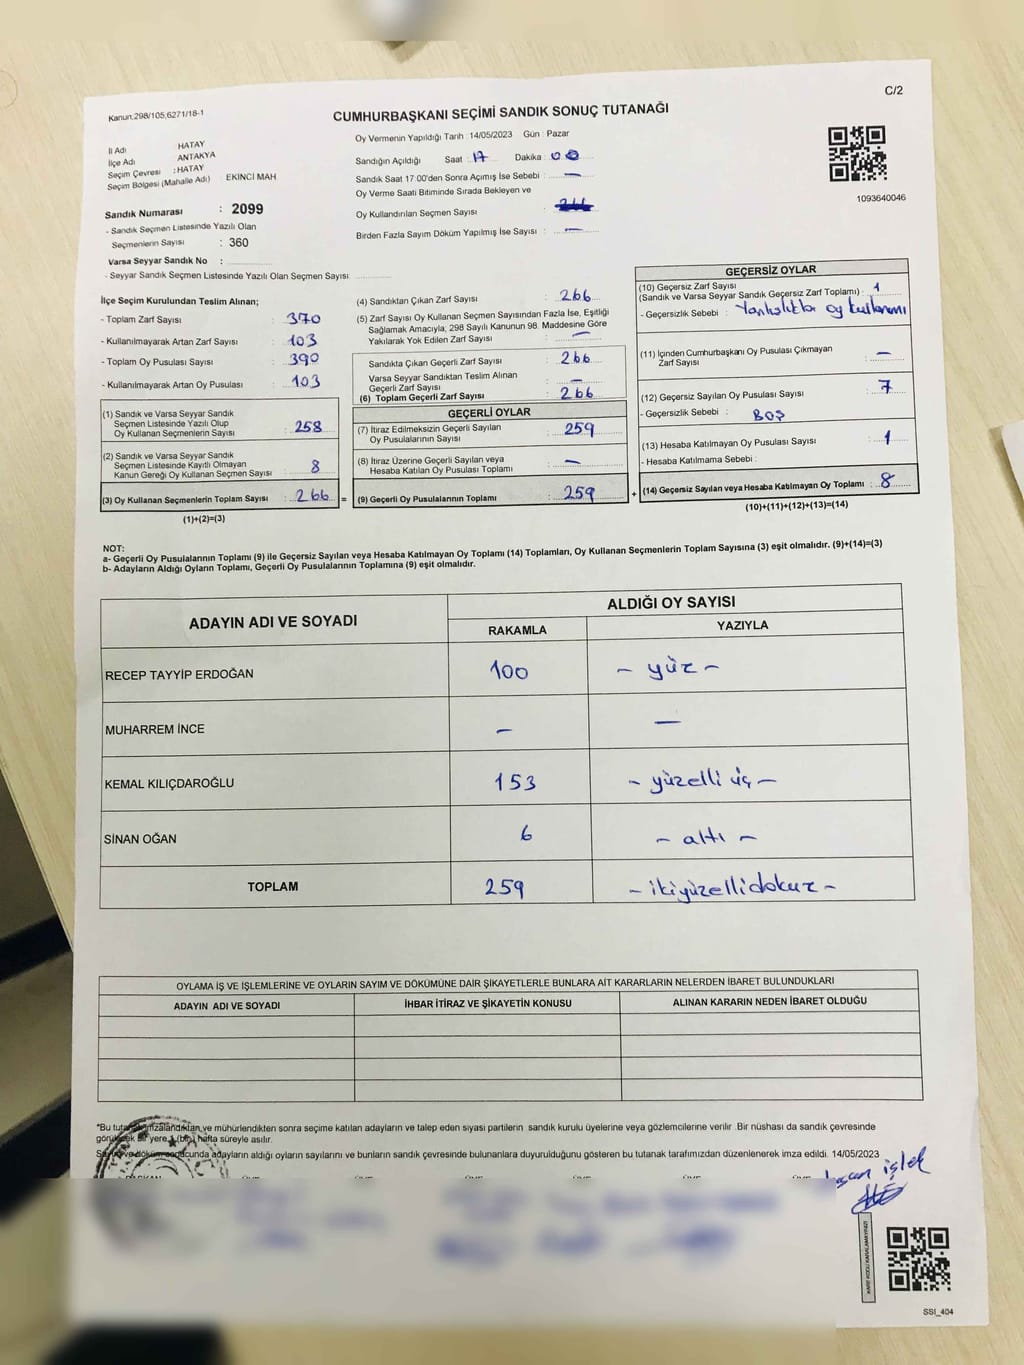 C/2
Kanun.298/105,6271/18-1
CUMHURBAŞKANI SEÇİMİ SANDIK SONUÇ TUTANAĞI
İl Adı HATAY
İlçe Adı ANTAKYA
Seçim Çevresi : HATAY
Seçim Bölgesi (Mahalle Adı) : EKİNCİ MAH
Sandık Numarası : 2099
- Sandık Seçmen Listesinde Yazılı Olan
Seçmenlerin Sayısı : 360
Varsa Seyyar Sandık No :
- Seyyar Sandık Seçmen Listesinde Yazılı Olan Seçmen Sayısı
Oy Vermenin Yapıldığı Tarih : 14/05/2023 Gün : Pazar
Sandığın Açıldığı Saat : 17 Dakika : 00
Sandık Saat 17.00'den Sonra Açımış İse Sebebi : —
Oy Verme Saati Bitiminde Sırada Bekleyen ve
Oy Kullandırılan Seçmen Sayısı :
Birden Fazla Sayım Döküm Yapılmış İse Sayısı : —
1093640046
İlçe Seçim Kurulundan Teslim Alınan;
- Toplam Zarf Sayısı : 370
- Kullanılmayarak Artan Zarf Sayısı : 103
- Toplam Oy Pusulası Sayısı : 390
- Kullanılmayarak Artan Oy Pusulası : 103
(1) Sandık ve Varsa Seyyar Sandık
Seçmen Listesinde Yazılı Olup
Oy Kullanan Seçmenlerin Sayısı : 258
(2) Sandık ve Varsa Seyyar Sandık
Seçmen Listesinde Kayıtlı Olmayan
Kanun Gereği Oy Kullanan Seçmen Sayısı : 8
(3) Oy Kullanan Seçmenlerin Toplam Sayısı : 266 =
(1)+(2)=(3)
(4) Sandıktan Çıkan Zarf Sayısı : 266
(5) Zarf Sayısı Oy Kullanan Seçmen Sayısından Fazla İse, Eşitliği
Sağlamak Amacıyla, 298 Sayılı Kanunun 98. Maddesine Göre
Yakılarak Yok Edilen Zarf Sayısı : —
Sandıkta Çıkan Geçerli Zarf Sayısı : 266
Varsa Seyyar Sandıktan Teslim Alınan
Geçerli Zarf Sayısı : —
(6) Toplam Geçerli Zarf Sayısı : 266
GEÇERLİ OYLAR
(7) İtiraz Edilmeksizin Geçerli Sayılan
Oy Pusulalarının Sayısı : 259
(8) İtiraz Üzerine Geçerli Sayılan veya
Hesaba Katılan Oy Pusulası Toplamı : —
(9) Geçerli Oy Pusulalarının Toplamı : 259 +
GEÇERSİZ OYLAR
(10) Geçersiz Zarf Sayısı
(Sandık ve Varsa Seyyar Sandık Geçersiz Zarf Toplamı) : 1
- Geçersizlik Sebebi : Yanlışlıkla oy kullanımı
(11) İçinden Cumhurbaşkanı Oy Pusulası Çıkmayan
Zarf Sayısı : —
(12) Geçersiz Sayılan Oy Pusulası Sayısı : 7
- Geçersizlik Sebebi : BOŞ
(13) Hesaba Katılmayan Oy Pusulası Sayısı : 1
- Hesaba Katılmama Sebebi :
(14) Geçersiz Sayılan veya Hesaba Katılmayan Oy Toplamı : 8
(10)+(11)+(12)+(13)=(14)
NOT:
a- Geçerli Oy Pusulalarının Toplamı (9) ile Geçersiz Sayılan veya Hesaba Katılmayan Oy Toplamı (14) Toplamları, Oy Kullanan Seçmenlerin Toplam Sayısına (3) eşit olmalıdır. (9)+(14)=(3)
b- Adayların Aldığı Oyların Toplamı, Geçerli Oy Pusulalarının Toplamına (9) eşit olmalıdır.
ADAYIN ADI VE SOYADI ALDIĞI OY SAYISI
RAKAMLA YAZIYLA
RECEP TAYYİP ERDOĞAN 100 - yüz -
MUHARREM İNCE — —
KEMAL KILIÇDAROĞLU 153 - yüzelli üç -
SİNAN OĞAN 6 - altı -
TOPLAM 259 - ikiyüzellidokuz -
OYLAMA İŞ VE İŞLEMLERİNE VE OYLARIN SAYIM VE DÖKÜMÜNE DAİR ŞİKAYETLERLE BUNLARA AİT KARARLARIN NELERDEN İBARET BULUNDUKLARI
ADAYIN ADI VE SOYADI İHBAR İTİRAZ VE ŞİKAYETİN KONUSU ALINAN KARARIN NEDEN İBARET OLDUĞU
*Bu imzalandıktan ve mühürlendikten sonra seçime katılan adayların ve talep eden siyasi partilerin sandık kurulu üyelerine veya gözlemcilerine verilir .Bir nüshası da sandık çevresinde
bir yere 1 (bir) hafta süreyle asılır.
adayların aldığı oyların sayılarını ve bunların sandık çevresinde bulunanlara duyurulduğunu gösteren bu tutanak tarafımızdan düzenlenerek imza edildi. 14/05/2023
işlek
SSI_404